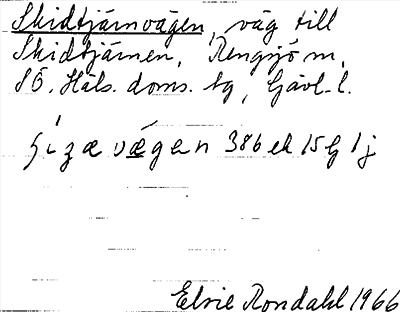 Skidtjärnvägen, väg till
Skidtjärnen, Rengsjö m,
SÖ. Häls. doms. tg, Gävl. l.
vægen 386 ek 15 G 1 j
Elsie Rondahl 1966